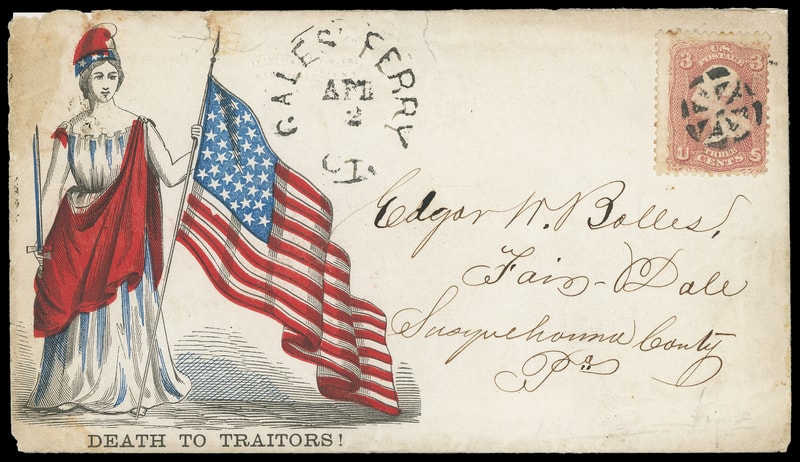 GALES FERRY
APR
2
CT
3 3
U.S.
POSTAGE
THREE
U CENTS S
Edgar W. Bolles,
Fair-Dale
Susquehanna County
Pa
DEATH TO TRAITORS!